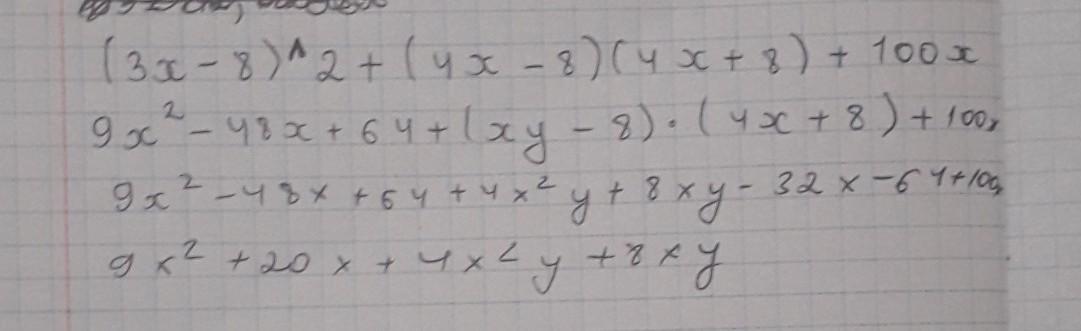 (3x-8)^2+(4x-8)(4x+8)+100x
9x²-48x+64+(xy-8)·(4x+8)+100x
9x²-48x+64+4x²y+8xy-32x-64+100x
9x²+20x+4x²y+8xy